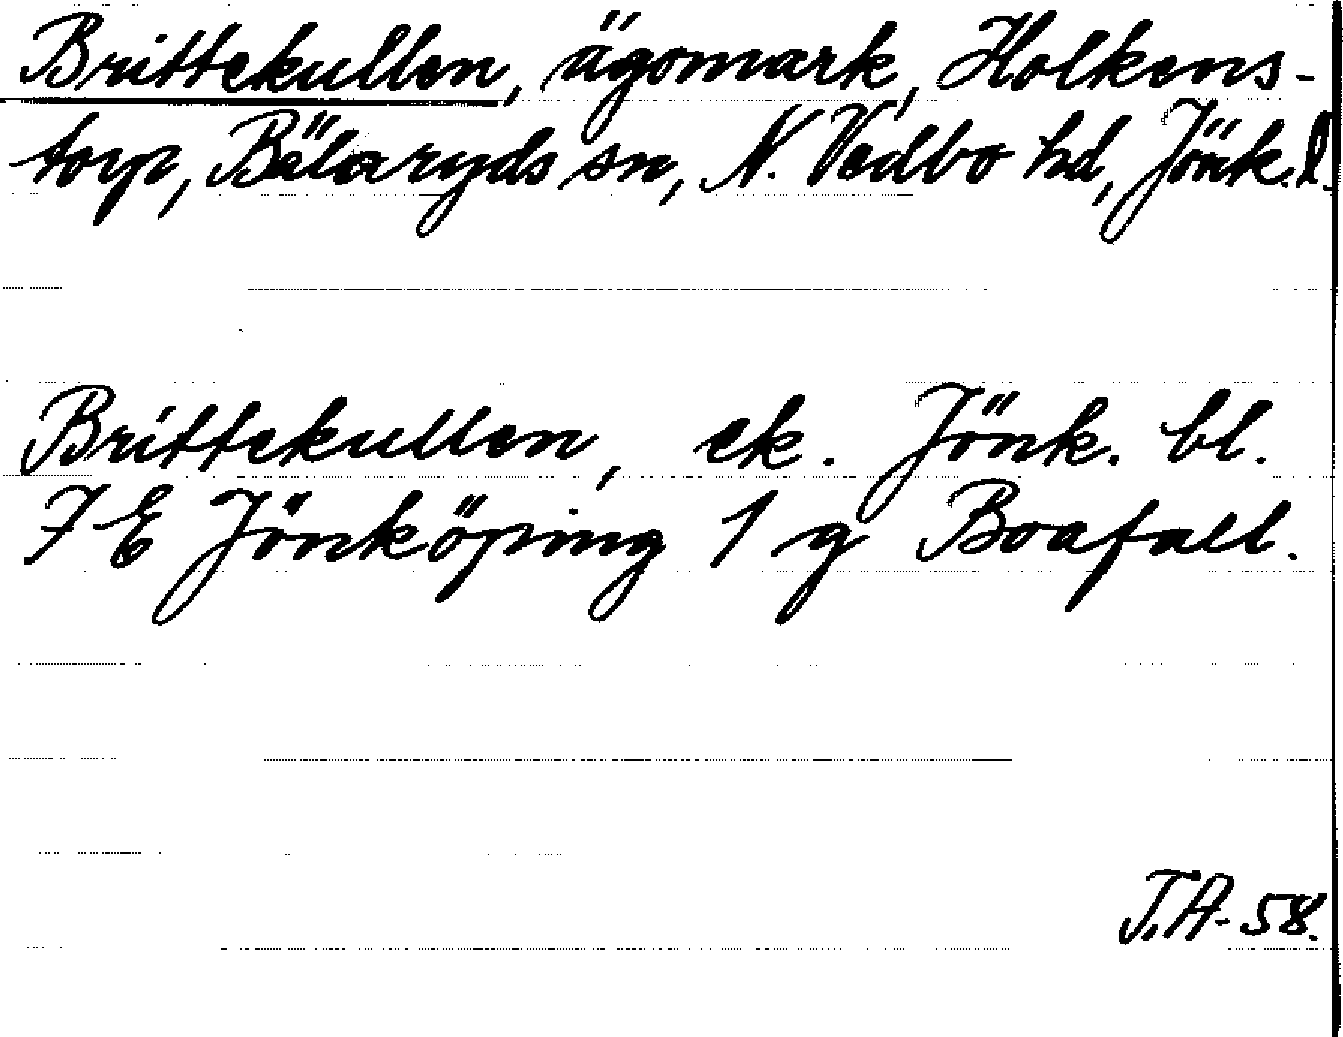 Brittekullen, ägomark, Holkens-
torp, Bälaryds sn, N. Vedbo hd, Jönk. l.
Brittekullen, ek. Jönk. bl.
7 E Jönköping 1 g Boafall.
T.A. 58.